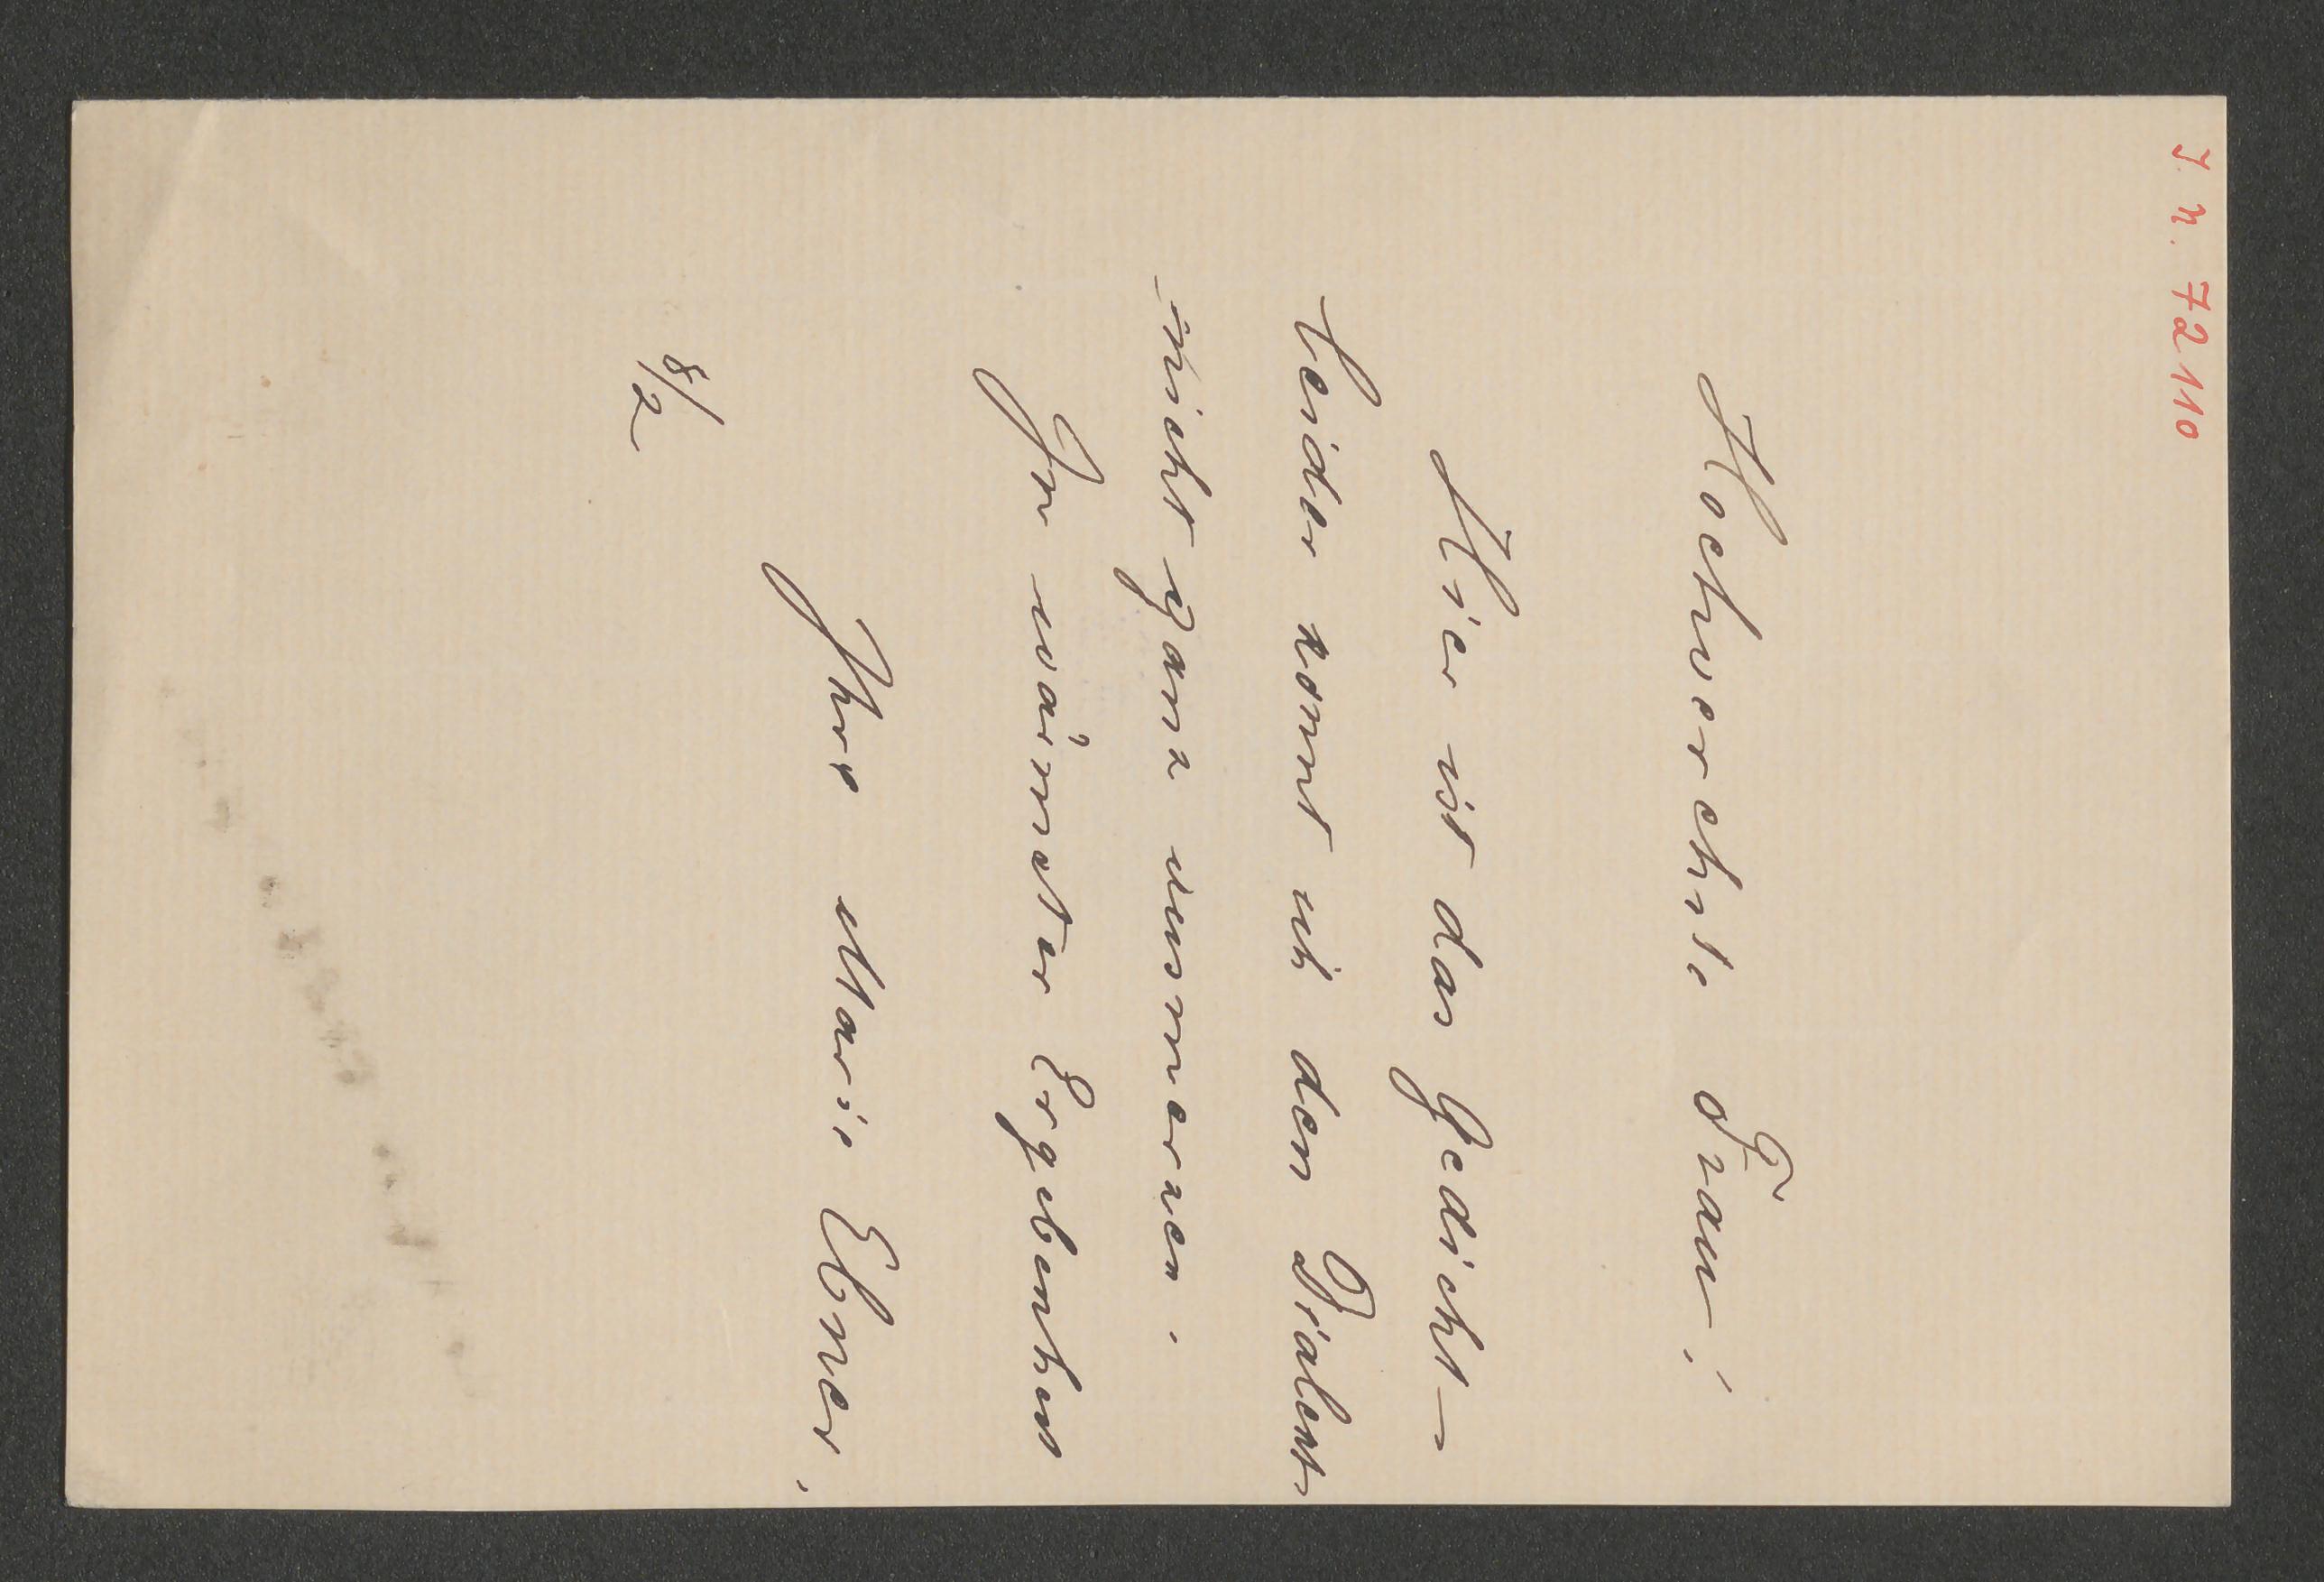 J. N. 72110
Hochverehrte Frau!
Hier ist das Gedicht –
leider konnt ich den Dialect
nicht ganz ausmerzen.
In wärmster Ergebenheit
Ihre Marie Ebner.
8/2